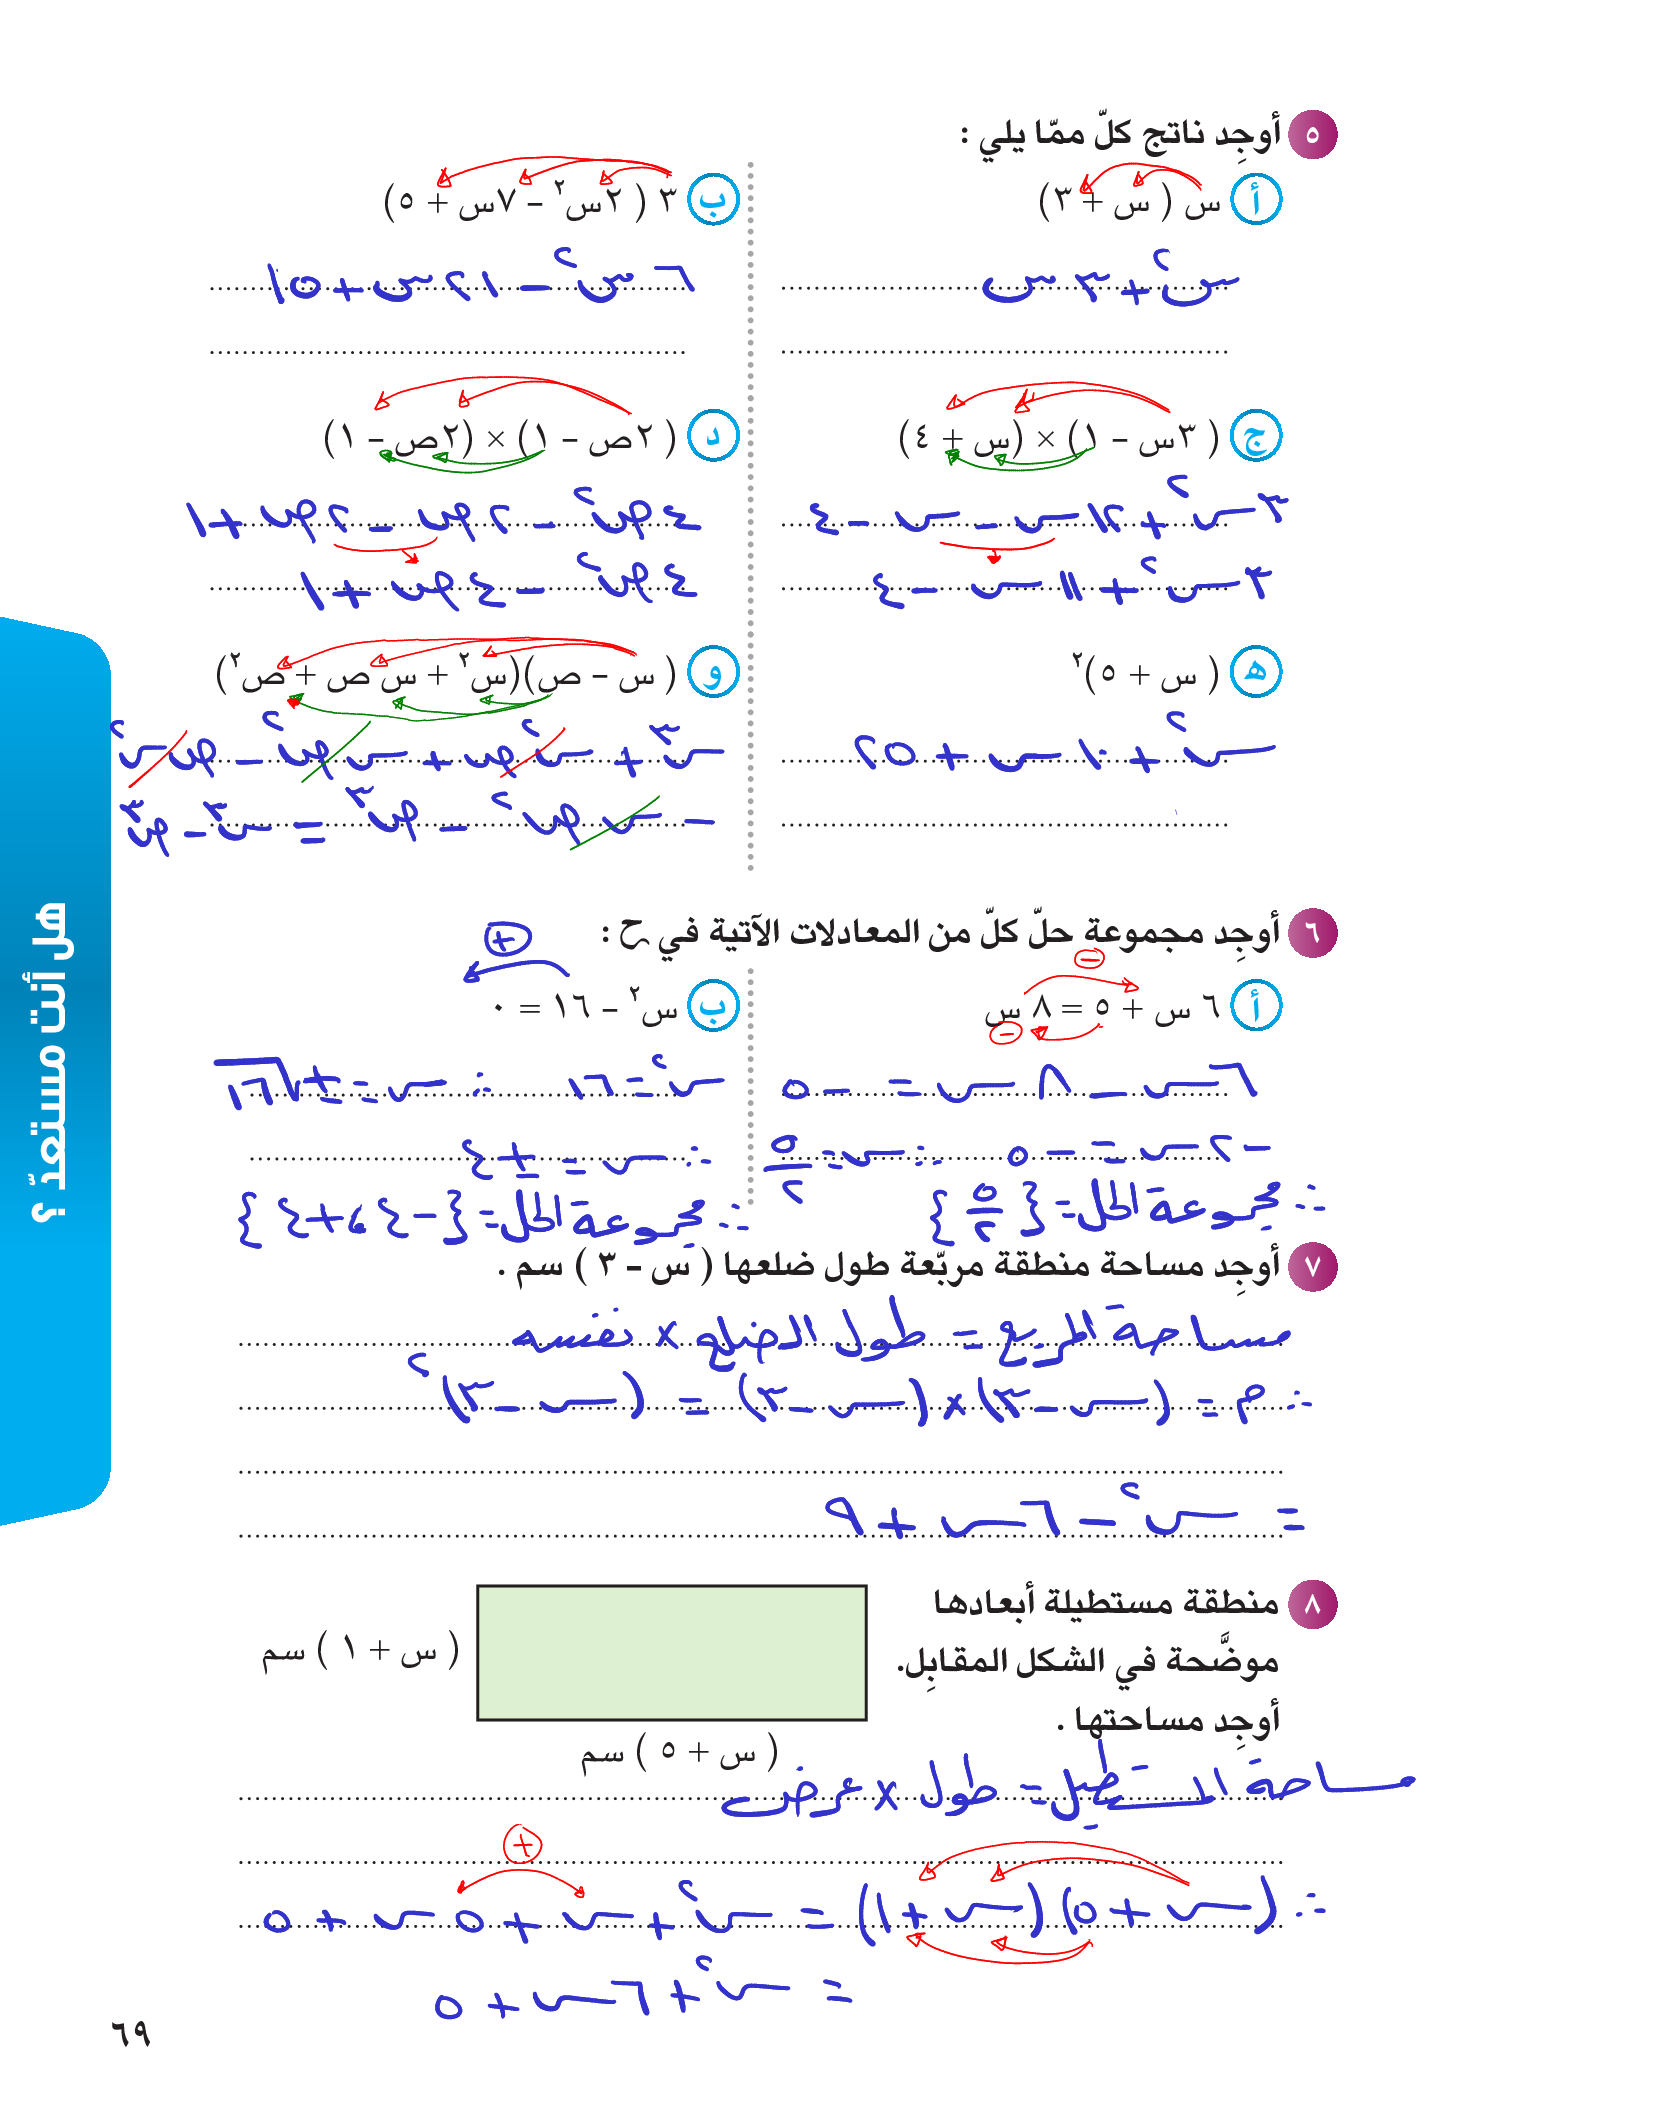 ٥ أوجِد ناتج كلّ ممّا يلي :
أ س ( س + ٣)
س٢ + ٣س
ب ٣ ( ٢س٢ – ٧س + ٥)
٦س٢ – ٢١س + ١٥
ج ( ٣س – ١) × (س + ٤)
٣س٢ + ١٢س – س – ٤
٣س٢ + ١١س – ٤
د ( ٢ص – ١) × (٢ص – ١)
٤ص٢ – ٢ص – ٢ص + ١
٤ص٢ – ٤ص + ١
ه ( س + ٥)٢
س٢ + ١٠س + ٢٥
و ( س – ص)(س٢ + س ص + ص٢)
س٣ + س٢ص + س ص٢ – ص س٢
– س ص٢ – ص٣ = س٣ – ص٣
٦ أوجِد مجموعة حلّ كلّ من المعادلات الآتية في ح :
أ ٦ س + ٥ = ٨ س
–
–
٦س – ٨س = – ٥
– ٢س = – ٥ ∴ س = ٥/٢
∴ مجموعة الحل = { ٥/٢ }
+
ب س٢ – ١٦ = ٠
س٢ = ١٦ ∴ س = ± √١٦
∴ س = ± ٤
∴ مجموعة الحل = { – ٤ ، + ٤ }
٧ أوجِد مساحة منطقة مربّعة طول ضلعها ( س – ٣ ) سم .
مساحة المربع = طول الضلع × نفسه
∴ م = (س – ٣) × (س – ٣) = (س – ٣)٢
= س٢ – ٦س + ٩
٨ منطقة مستطيلة أبعادها
موضَّحة في الشكل المقابِل.
أوجِد مساحتها .
( س + ١ ) سم
( س + ٥ ) سم
مساحة المستطيل = طول × عرض
+
∴ (س + ٥) (س + ١) = س٢ + س + ٥س + ٥
= س٢ + ٦س + ٥
هل أنت مستعدّ ؟
٦٩